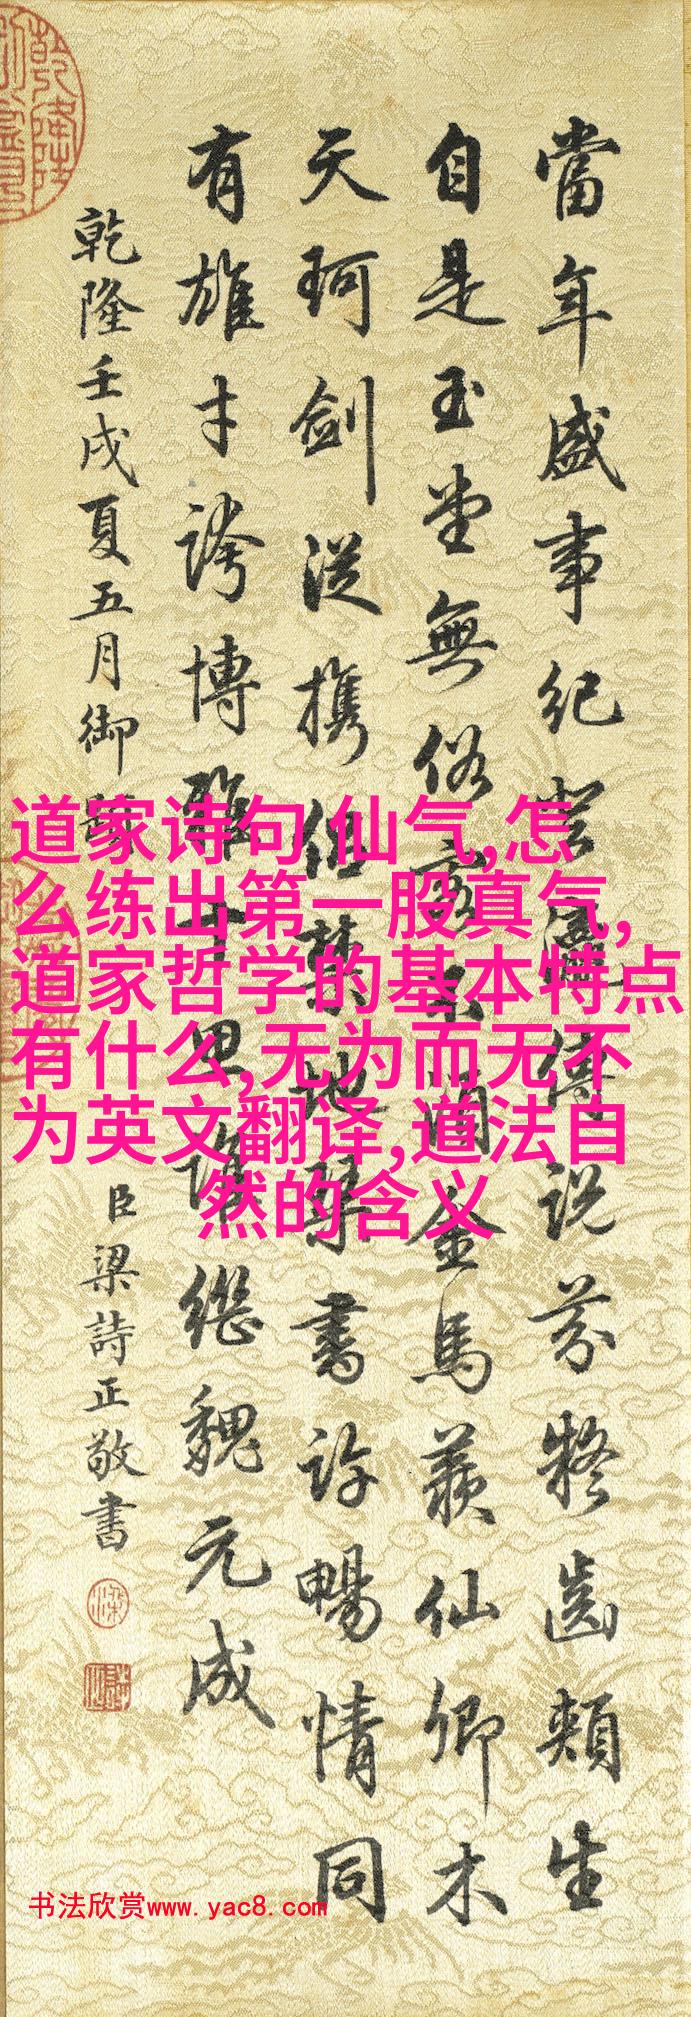 當年盛事紀登瀛傳說芬齒頰生
自是玉堂無俗客消金馬羨仙卿木
天珂劍從携但禁地琴書許暢情同
有雄才誇博雅十思誰繼魏元成
乾隆壬戌夏五月御題
臣梁詩正敬書
道家诗句 仙气,怎
么练出第一股真气,
道家哲学的基本特点
有什么,无为而无不
为英文翻译,道法自
然的含义
书法欣赏www.yac8.com